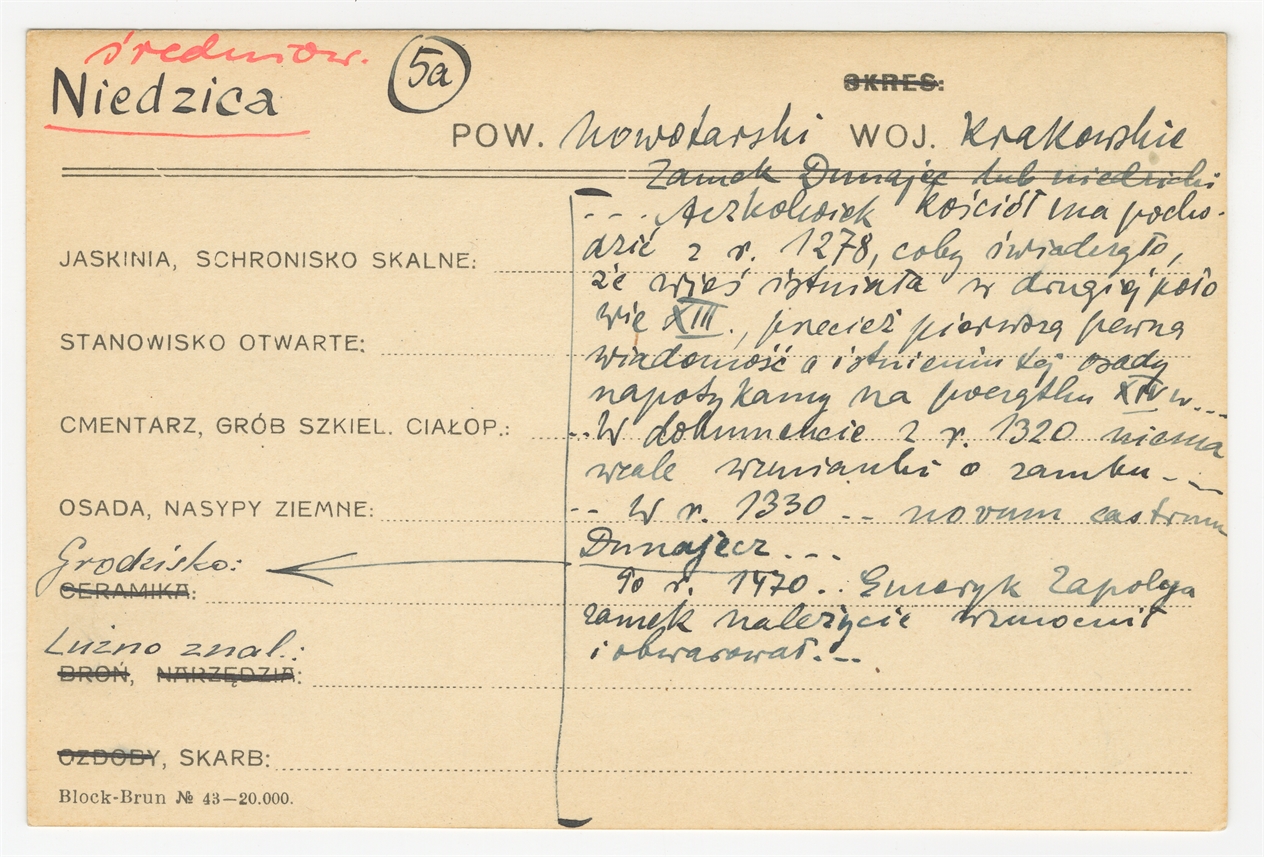 średniow.
Niedzica
5a
OKRES:
POW. Nowotarski WOJ. Krakowskie
Zamek Dunajec lub niedzicki
--- Aczkolwiek kościół ma pocho-
dzić z r. 1278, coby świadczyło,
że wieś istniała w drugiej poło
wie XIII., przecież pierwszą pewną
wiadomość o istnieniu tej osady
napotykamy na początku XIV w. --
-- W dokumencie z r. 1320 niema
wcale wzmianki o zamku. --
-- W r. 1330 -- novum castrum
Dunajecz ---
Po r. 1470 .. Emeryk Zapolya
zamek należycie wzmocnił
i obwarował. --
JASKINIA, SCHRONISKO SKALNE:
STANOWISKO OTWARTE:
CMENTARZ, GRÓB SZKIEL. CIAŁOP.:
OSADA, NASYPY ZIEMNE:
Grodzisko:
CERAMIKA:
Luźno znal.:
BROŃ, NARZĘDZIA:
OZDOBY, SKARB:
Block-Brun № 43—20.000.